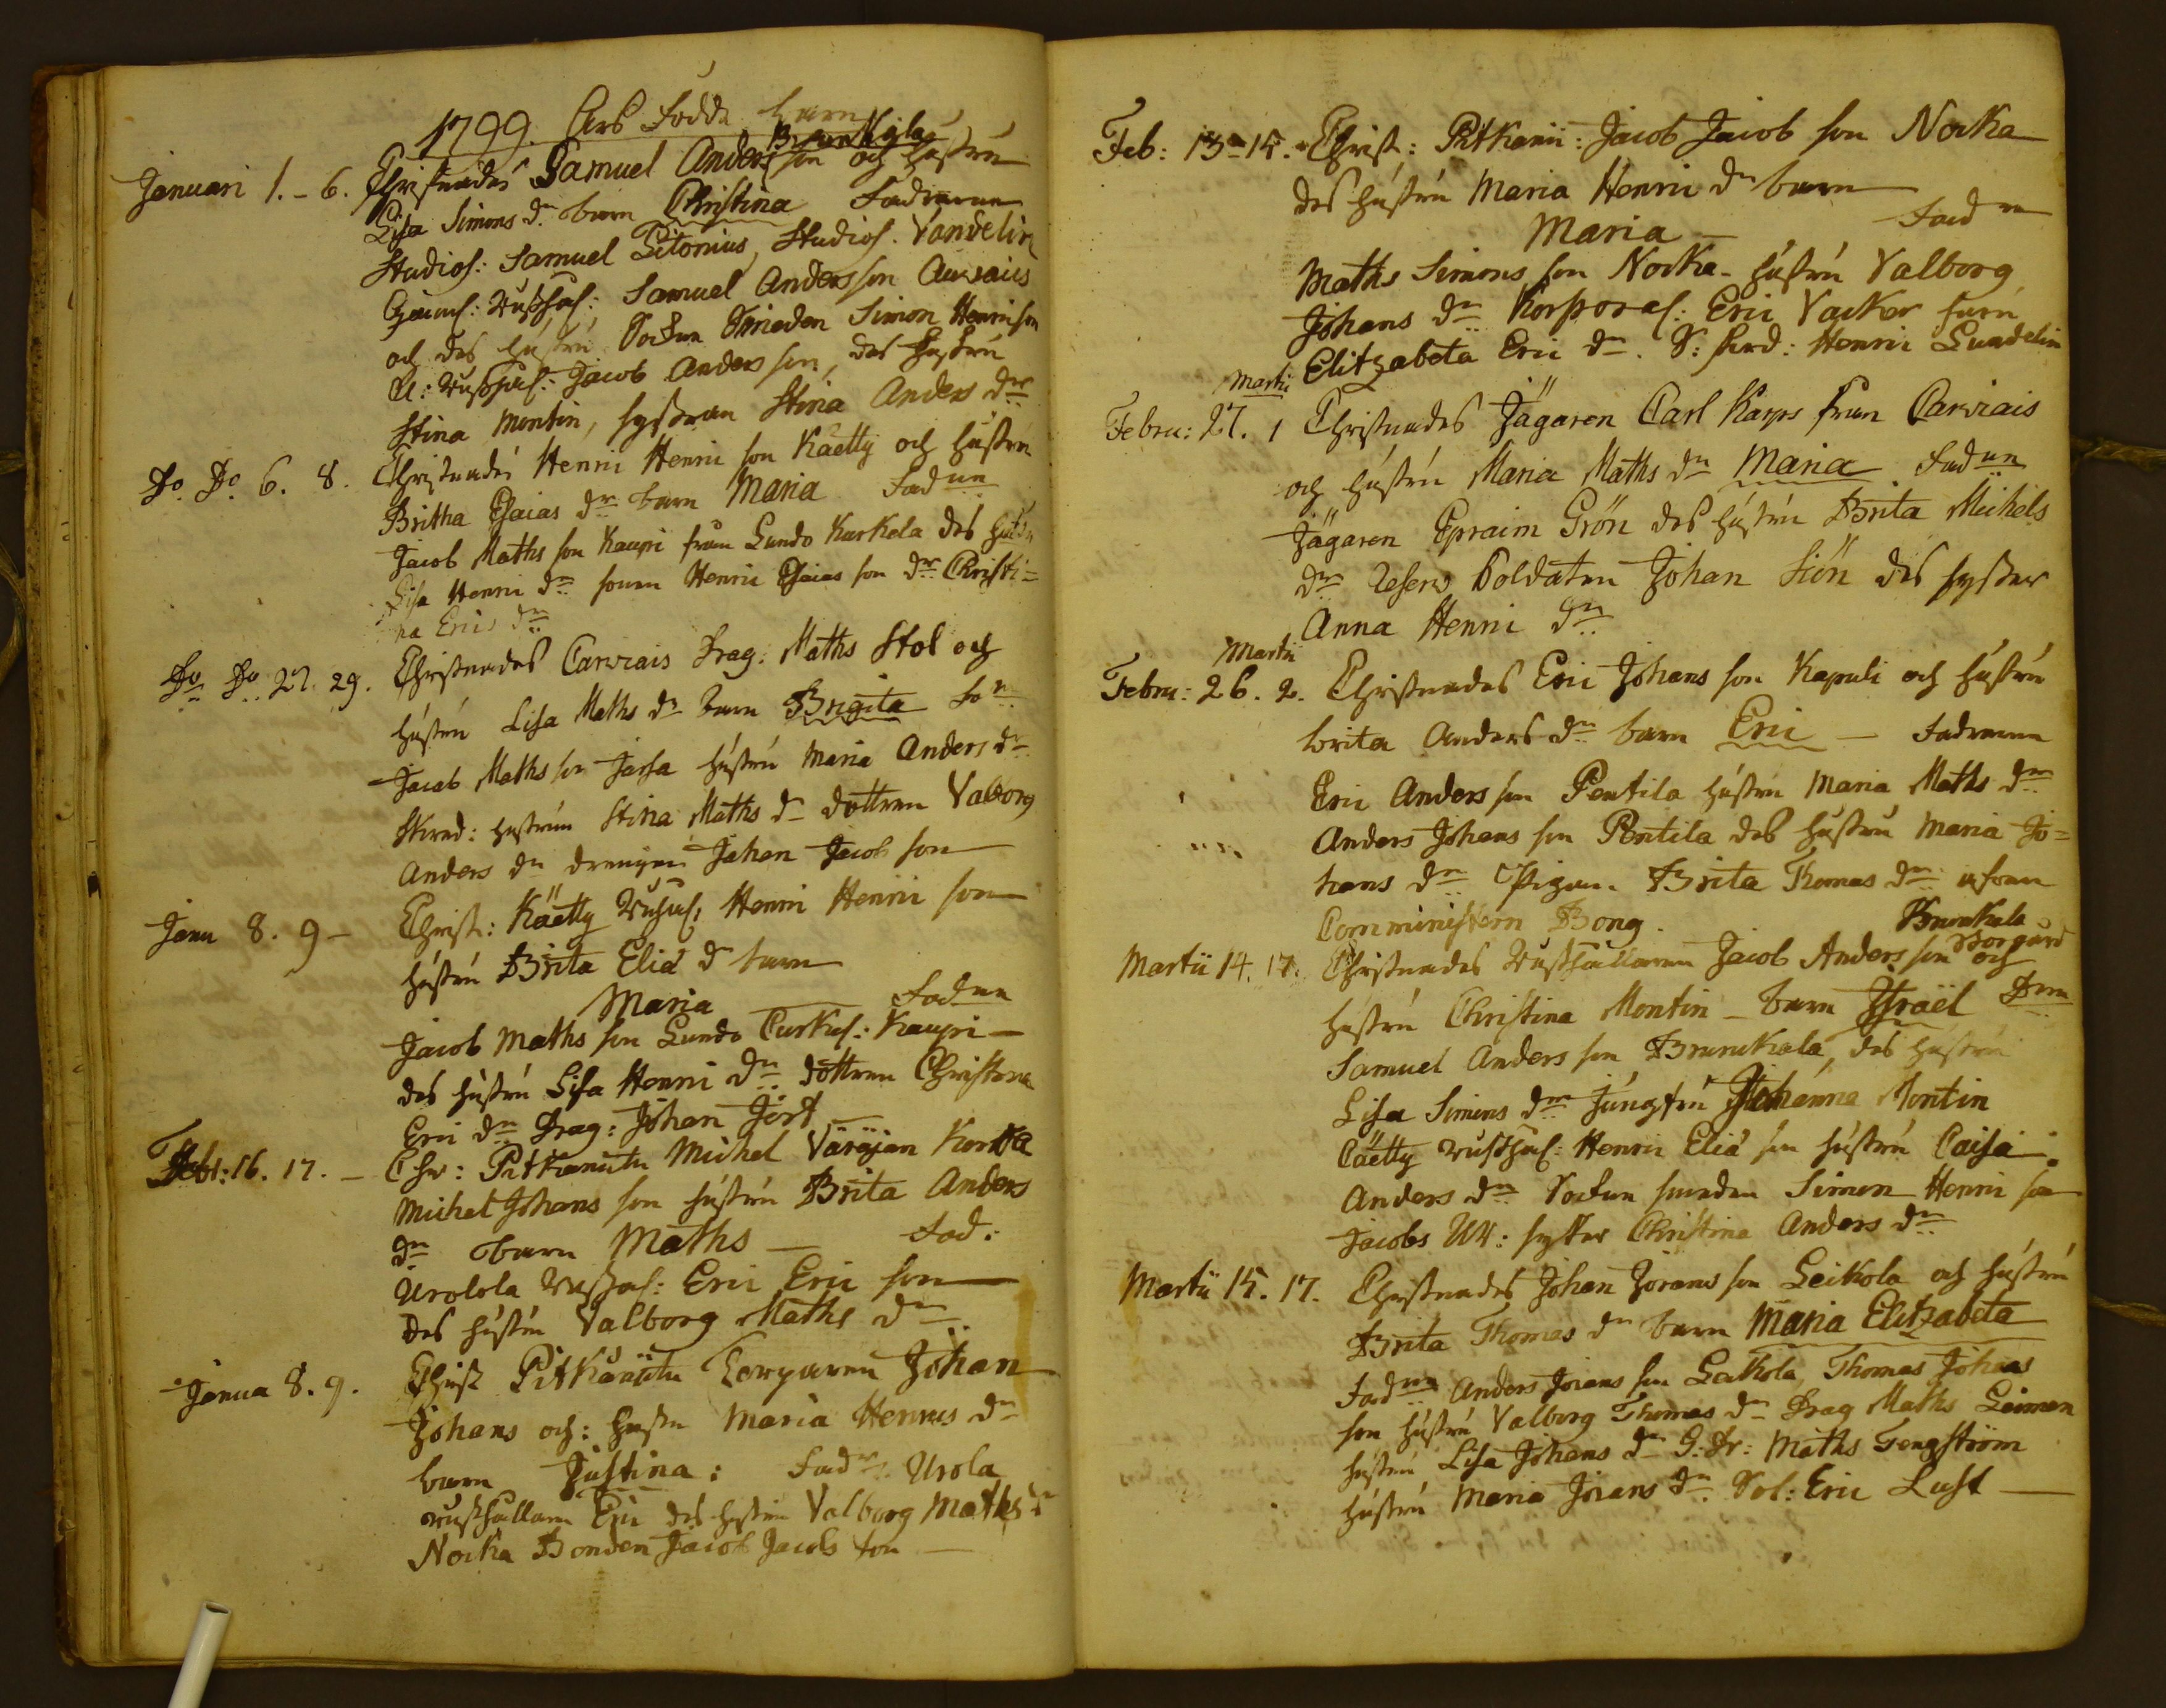 1799. Års Födda barn
Brunkila
Januari 1. - 6. Christnades Samuel Anders son och hustru
Lisa Simons dr barn Christina Fadrarne
Studios: Samuel Pitonius, Studios. Vandelin
Rusthol: Samuel Anders son Carvais
och des hustru Socken Smeden Simon Henrison
Rusthol: Jacob Anders son, des hustru
Stina Montin, systran Stina Anders dr
Do Do 6. 8. Christnades Henric Henric son Käetty och hustru
Britha Esaias dr barn Maria Fadrne
Jacob Maths son Kaupi från Lundo Kurkela des hustru
Lisa Henric dr sonen Henric Esaias son dr Christi=
na Erics dr
Do Do 27. 29. Christnades Carvais Drag: Maths Stol och
hústrú Lisa Maths dr barn Brigita
Jacob Maths son Jassa hústrú Maria Anders dr
Skred: hustrun Stina Maths dr dottren Valborg
Anders dr drengen Johan Jacob son
Janu 8. 9 - Christ: Käetty Rusthol, Henric Henric son
hústrú Brita Elia dr barn
Maria Fadrne
Jacob Maths son Lundo Curkul: Kaupi
des hústrú Lisa Henric dr dottren Christina
Eric dr Drag: Johan Jort
Febr: 16. 17. - Chr: Pitkänitu Michel Väräjan Kortta
Michel Johans son hústrú Brita Anders
dr barn Maths Fad:
Urolola Rusthol: Eric Eric son
des hústrú Valborg Maths dr
Janua 8. 9. Christ Pitkänitu Torparen Johan
Johans och: Hustru Maria Henrics dr
barn Justina: Fadr: Urola
rusthållaren Eric des hustru Valborg Maths dr
Nocka Bonden Jacob Jacobs son
Feb: 13 - 15. Christ: Pitkänii: Jacob Jacob son Nocka
des hústrú Maria Henric dr barn
Maria Fadrn
Maths Simons son Nocka hústrú Valborg
Johans dr Korporal: Eric Vacker
Elitzabeta Eric dr. S: skred: Henric Lundelin
Martii
Febru: 27. 1 Christnades Jägaren Carl Karps från Carviais
och hústrú Maria Maths dr Maria Fadrne
Jägaren Epraim Grön des hústrú Brita Michels
dr Reserv Soldaten Johan Siön des syster
Anna Henric dr
Martii
Febru: 26. 2. Christnades Eric Johans son Kapuli och hústrú
brita Anders dr barn Eric Fadrarne
Eric Anders son Pentila hústrú Maria Maths dr
Anders Johans son Pentila des hústrú Maria Jo=
hans dr Pigan Brita Thomas dr
Comministern Bong.
Brunkala
Storgård
Martii 14. 17. Christnades Rusthållaren Jacob Anders son och
hústrú Christina Montin barn Israël
Samuel Anders son Brunukala, des hústrú
Lisa Simons dr Jungfru Johanna Montin
Cäetty rusthol: Henric Elia son hústrú Caisa
Anders dr Socken smeden Simon Henric son
Jacobs syster Christina Anders dr
Martii 15. 17. Christnades Johan Jörans son Leikola och hústrú
Brita Thomas dr barn Maria Elitzabeta
Fadrne Anders Jörans son Leikola, Thomas Johans
son hústrú Valborg Thomas dr Drag Maths Leiman
hústrú Lisa Johans dr G: Dr: Maths Tengström
hústrú Maria Jörans dr Sol: Eric Lust